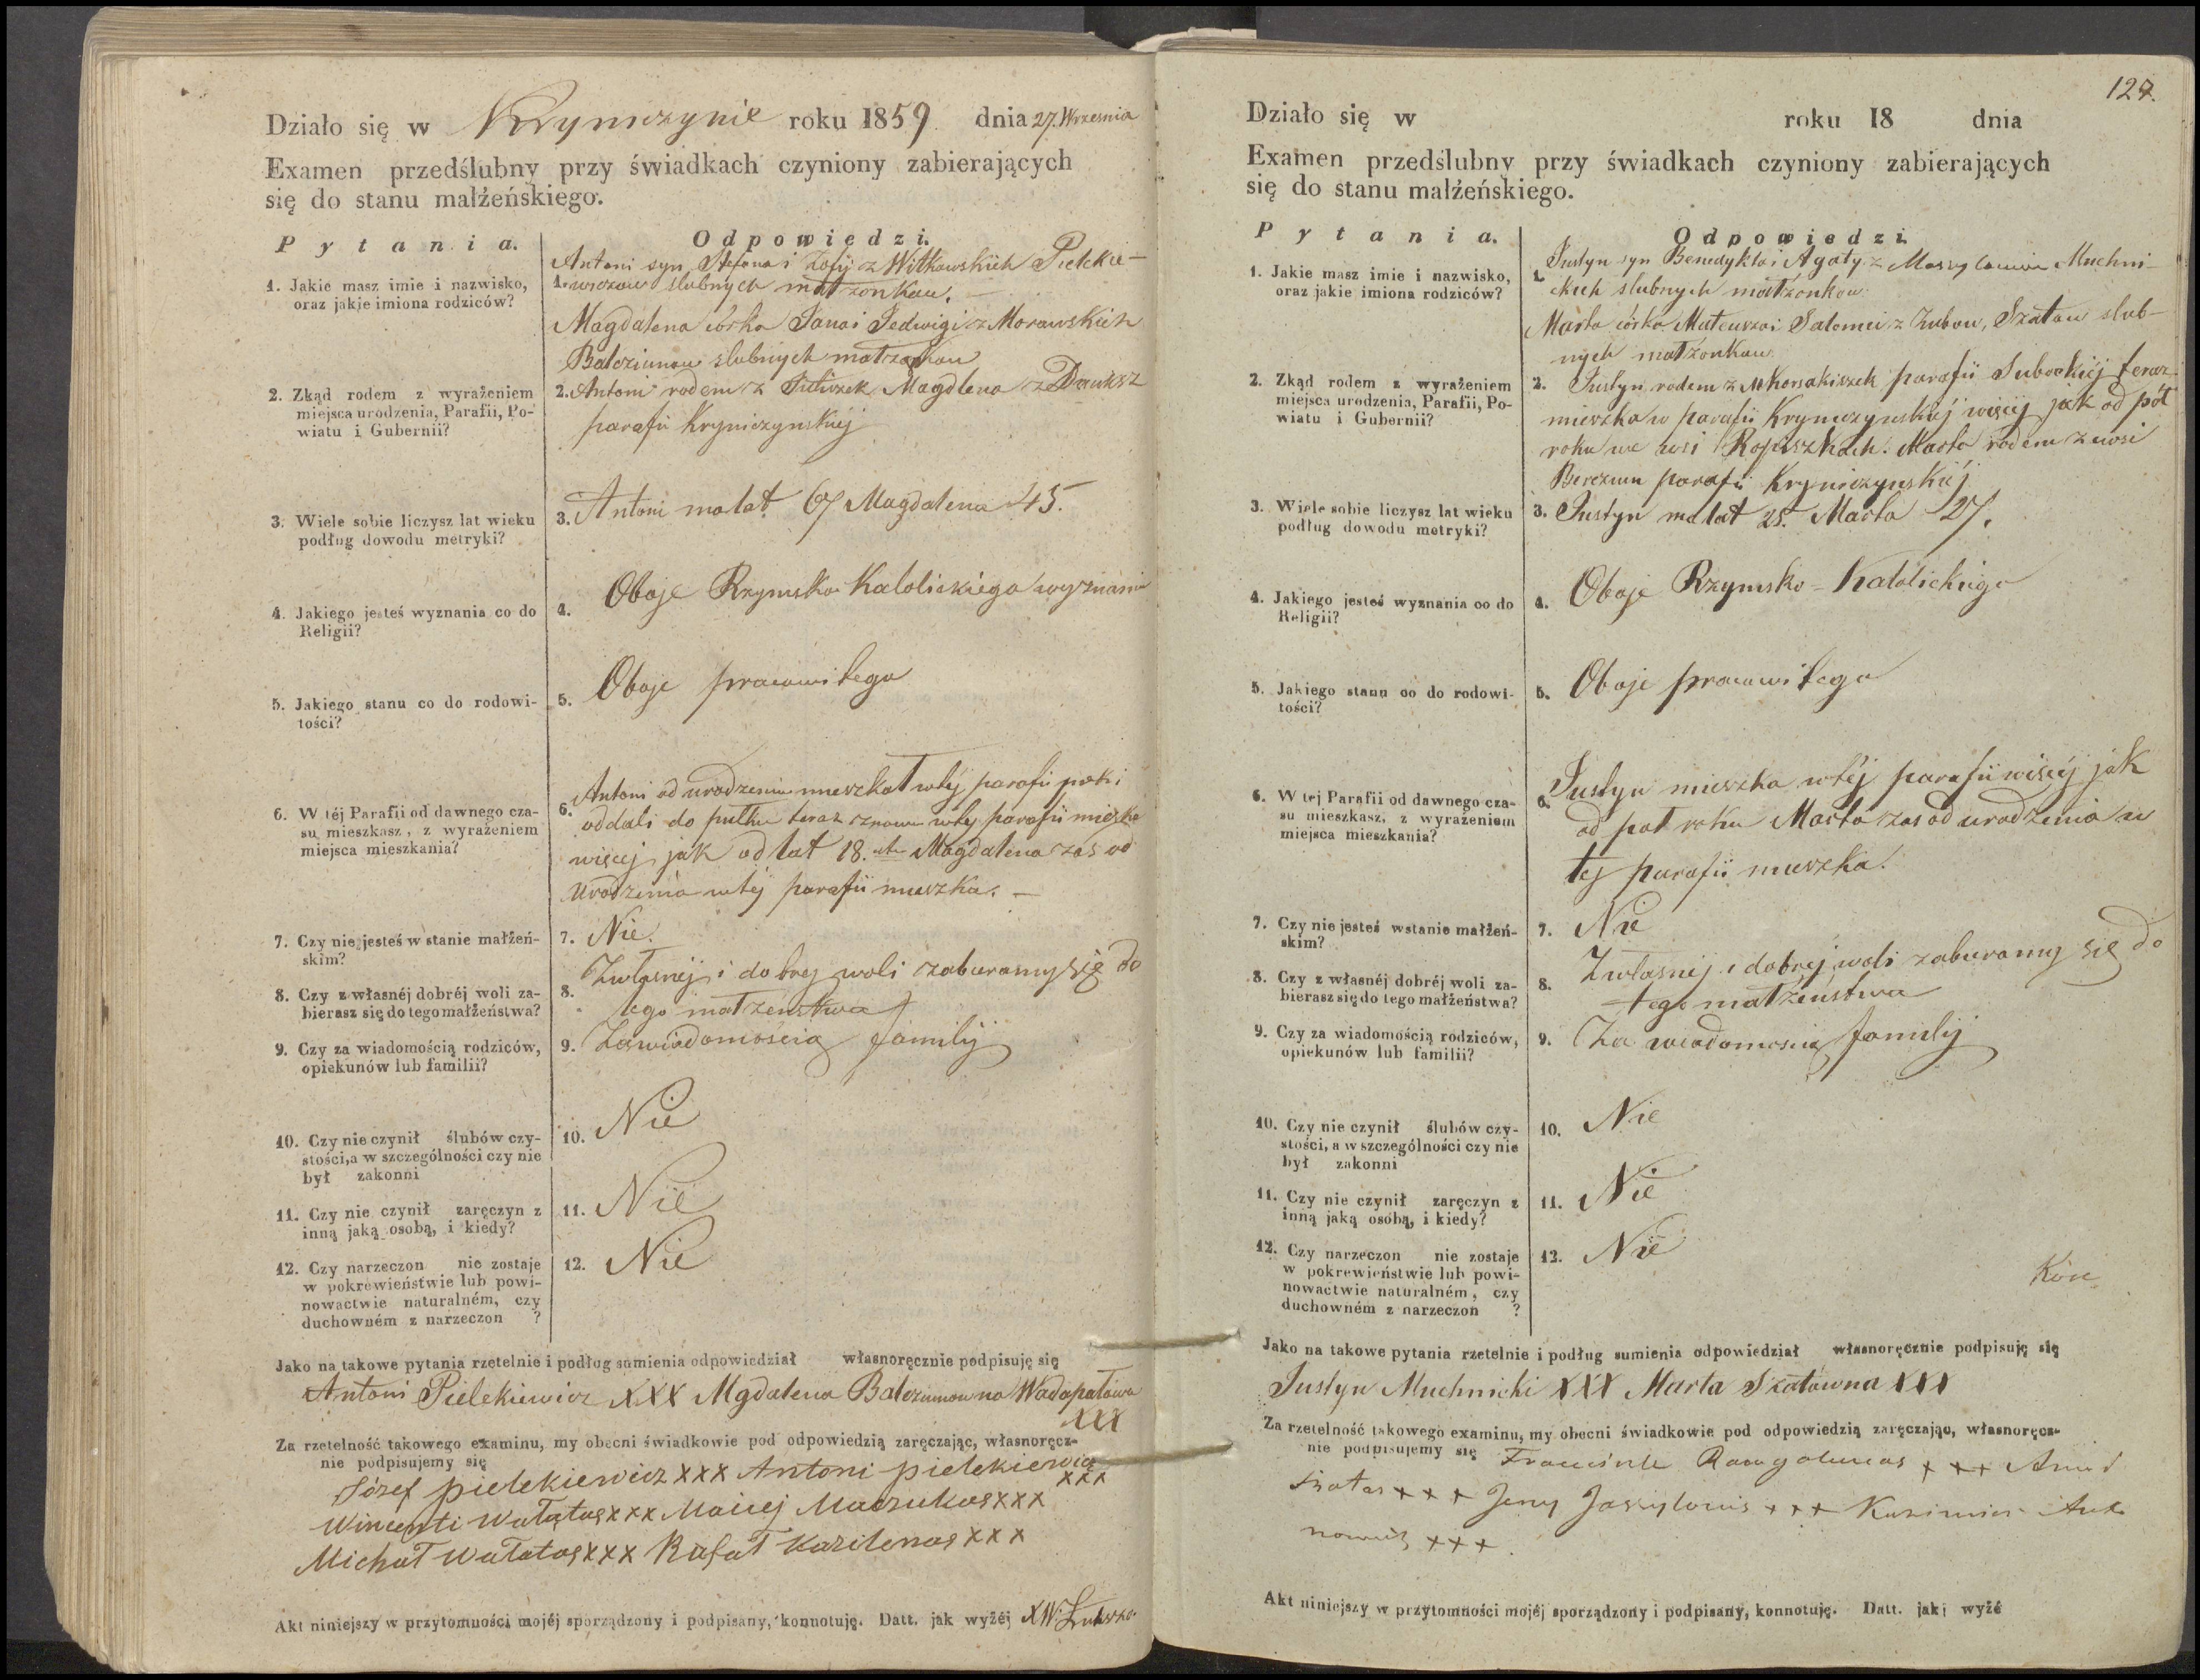 Działo się w Krynczynie roku 1859 dnia 27. Wrzesnia
Examen przedślubny przy świadkach czyniony zabierających
się do stanu małżeńskiego.
Pytania.
Odpowiedzi.
1. Jakie masz imie i nazwisko,
oraz jakie imiona rodziców?
Antoni syn Stefana i Zofij z Witkowskich Pielekie-
1. wiczow slubnych małzonkow.
Magdalena córka Jana i Jedwigi z Morawskich
Balcziunow slubnych małzonkow
2. Zkąd rodem z wyrażeniem
miejsca urodzenia, Parafii, Po-
wiatu i Gubernii?
2. Antoni rodem z Magdlena z Dauksz
parafii Kryniczynskiéj
3. Wiele sobie liczysz lat wieku
podług dowodu metryki?
3. Antoni ma lat 67 Magdalena 45.
4. Jakiego jesteś wyznania co do
Religii?
4. Oboje Rzymsko Katolickiego wyznania
5. Jakiego stanu co do rodowi-
tości?
5. Oboje pracowitego
6. W téj Parafii od dawnego cza-
su mieszkasz, z wyrażeniem
miejsca mieszkania?
Antoni od urodzenia mieszkał w téj parafii poki
6. oddali do pułku teraz znowu w tey parafii mieszka
więcej jak od lat 18. Magdalena zas od
urodzenia w téj parafii mieszka. -
7. Czy nie jesteś w stanie małżeń-
skim?
7. Nie.
8. Czy z własnéj dobréj woli za-
bierasz się do tego małżeństwa?
Z własnéj i dobrey woli zabieramy się do
8. tego małzenstwa
9. Czy za wiadomością rodziców,
opiekunów lub familii?
9. Za wiadomościa familij
10. Czy nie czynił ślubów czy-
stości, a w szczególności czy nie
był zakonni
10. Nie
11. Czy nie czynił zaręczyn z
inną jaką osobą, i kiedy?
11. Nie
12. Czy narzeczon nie zostaje
w pokrewieństwie lub powi-
nowactwie naturalném, czy
duchowném z narzeczon ?
12. Nie
Jako na takowe pytania rzetelnie i podług sumienia odpowiedział własnoręcznie podpisuję się
Antoni Pielekiewicz XXX Mgdalena Balcziunowna Wadapałowa
XXX
Za rzetelność takowego examinu, my obecni świadkowie pod odpowiedzią zaręczając, własnoręcz-
nie podpisujemy się
Józef pielekiewicz xxx Antoni pielekiewicz
xxx
Wincenti Wałatas xxx Maciej Maczukas xxx
Michał Wałatas xxx Rafał Kazilenas xxx
Akt niniejszy w przytomności mojéj sporządzony i podpisany, konnotuję. Datt. jak wyżéj XW
127.
Działo się w roku 18 dnia
Examen przedślubny przy świadkach czyniony zabierających
się do stanu małżeńskiego.
Pytania.
Odpowiedzi
1. Jakie masz imie i nazwisko,
oraz jakie imiona rodziców?
1. Justyn syn Benedykta i Agaty z Muchni-
ckich slubnych małżonkow
Marta córka Mateusza i Salomei z Zubow, Szatow slub-
nych małżonkow
2. Zkąd rodem z wyrażeniem
miejsca urodzenia, Parafii, Po-
wiatu i Gubernii?
2. Justyn rodem z parafii Subockiéj teraz
mieszka w parafii Krynczynskiéj więcéj jak od pół
roku we wsi Rapiszkach. Marta rodem z wsi
Berczun parafii Krynczynskiéj
3. Wiele sobie liczysz lat wieku
podług dowodu metryki?
3. Justyn ma lat 25. Marta 27.
4. Jakiego jesteś wyznania co do
Religii?
4. Oboje Rzymsko-Katolickiego
5. Jakiego stanu co do rodowi-
tości?
5. Oboje pracowitego
6. W tej Parafii od dawnego cza-
su mieszkasz, z wyrażeniem
miejsca mieszkania?
6. Justyn mieszka w téj parafii więcéj jak
od poł roku Marta zas od urodzenia w
tej parafii mieszka.
7. Czy nie jesteś wstanie małżeń-
skim?
7. Nie
8. Czy z własnéj dobréj woli za-
bierasz się do tego małżeństwa?
8. Z własnéj i dobréj woli zabieramy się do
tego małżeństwa
9. Czy za wiadomością rodziców,
opiekunów lub familii?
9. Za wiadomoscia familij
10. Czy nie czynił ślubów czy-
stości, a w szczególności czy nie
był zakonni
10. Nie
11. Czy nie czynił zaręczyn z
inną jaką osobą, i kiedy?
11. Nie
12. Czy narzeczon nie zostaje
w pokrewieństwie lub powi-
nowactwie naturalném, czy
duchowném z narzeczon ?
12. Nie
Jako na takowe pytania rzetelnie i podług sumienia odpowiedział własnoręcznie podpisuję się
Justyn Muchnicki XXX Marta Szatowna XXX
Za rzetelność takowego examinu, my obecni świadkowie pod odpowiedzią zaręczając, własnoręcz-
nie podpisujemy się +++
+++ Jerzy +++ Kazimier
+++
Akt niniejszy w przytomności mojéj sporządzony i podpisany, konnotuję. Datt. jak wyżé